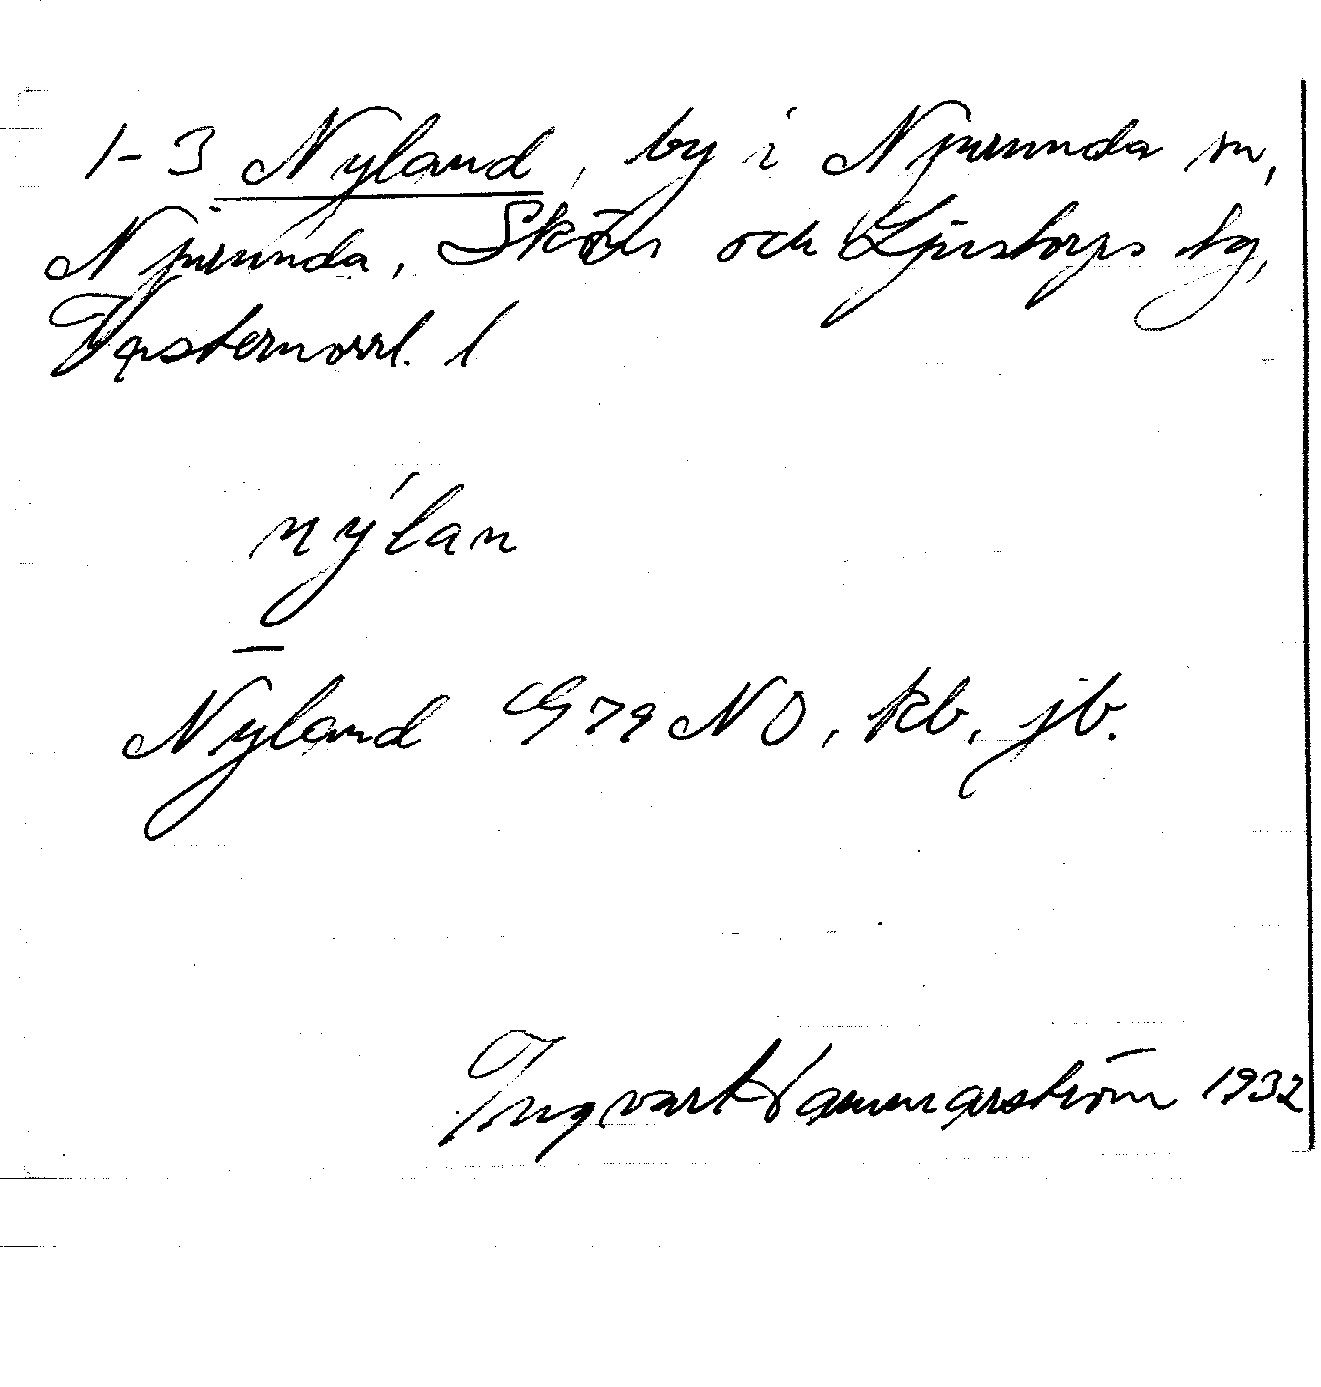 1-3 Nyland, by i Njurunda sn,
Njurunda, Sköns och Ljustorps tg,
Västernorrl. l
nýlan
Nyland G79NO, kb, jb.
Ingvar Hammarström 1932